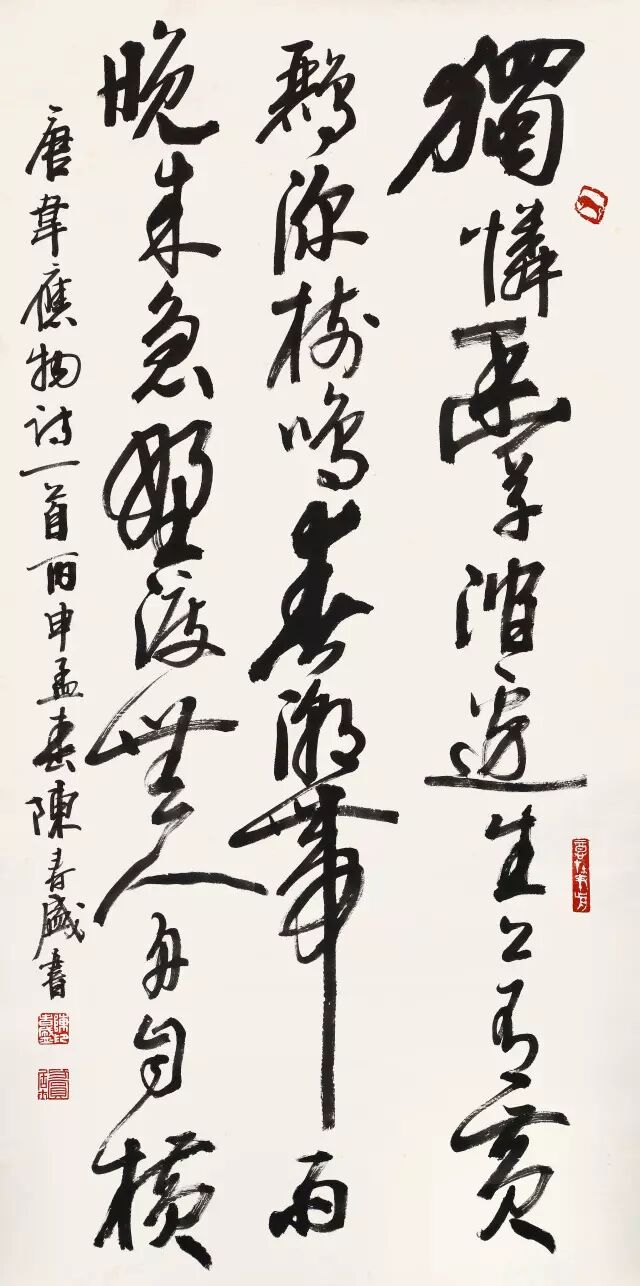 獨憐幽草澗邊生上有黄
鸝深樹鳴春潮帶雨
晚来急野渡無人舟自横
唐韋應物诗一首丙申孟春陳春盛書